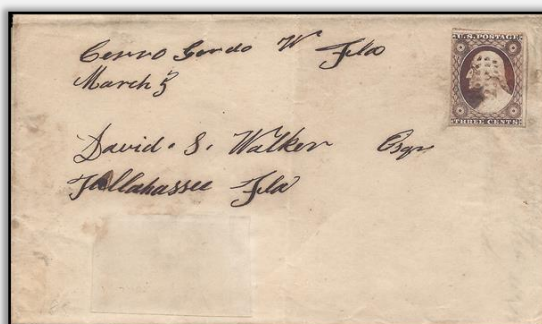 Cerro Gordo W Fla
March 3
U.S. POSTAGE
THREE CENTS
David. S. Walker Esqr
Tallahassee Fla